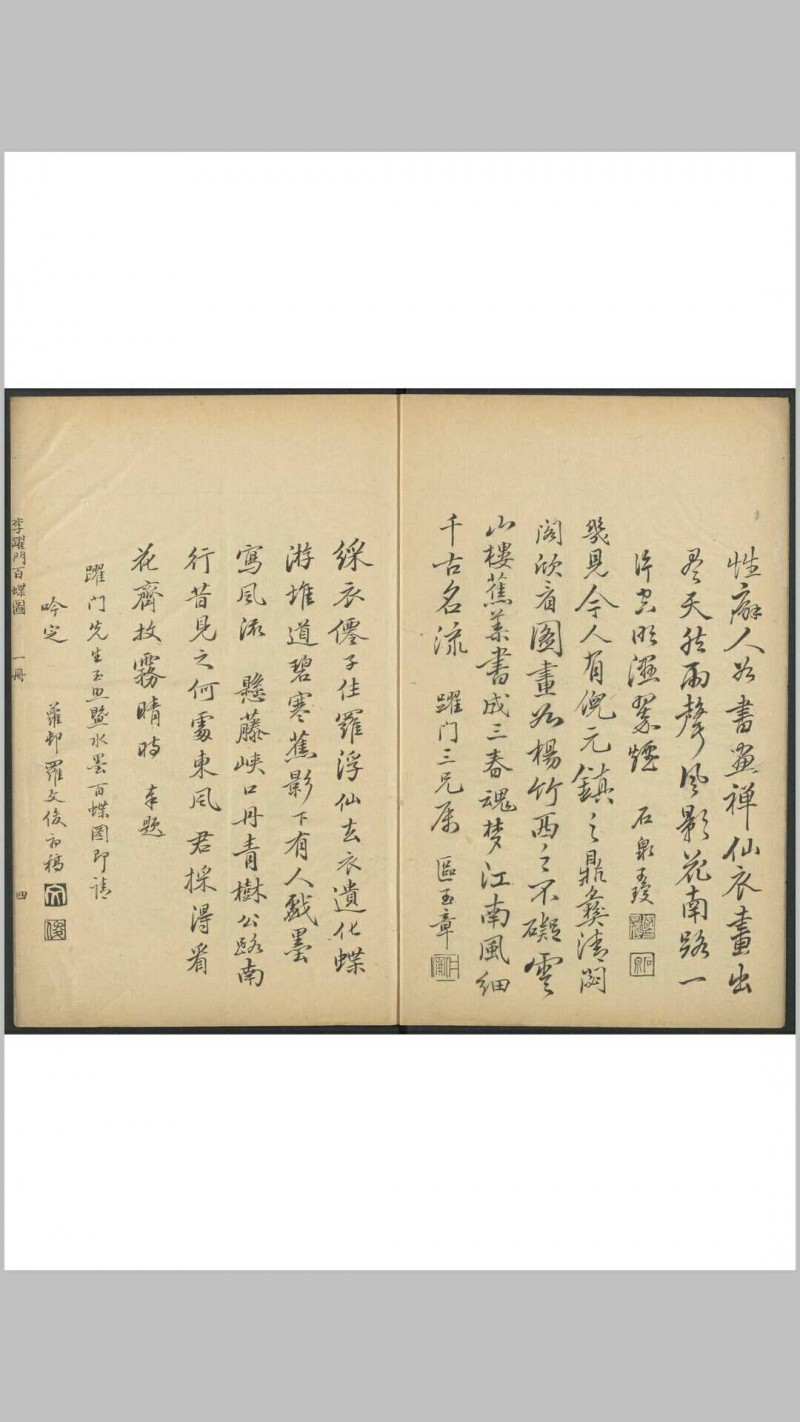 性癖人如書畫禅仙衣畫出
尽天然雨聲風影花南路一
片空明濕翠烟 石泉
幾見今人有倪元鎮之鼎彝清閟
閣欣看圖畫如楊竹西之不礙雲
山樓蕉葉書成三春魂梦江南風細
千古名流 躍门三兄属 區玉章
綵衣僊子住羅浮仙去衣遺化蝶
游堆道碧寒蕉影下有人戲墨
寫風流 懸藤峽口丹青樹公路南
行昔見之何處東风君採得看
花齊放霧晴時 奉題
躍门先生玉照暨水墨百蝶图即請
吟定 蘿邨羅文俊初稿
李躍門百蝶圖 一冊 四